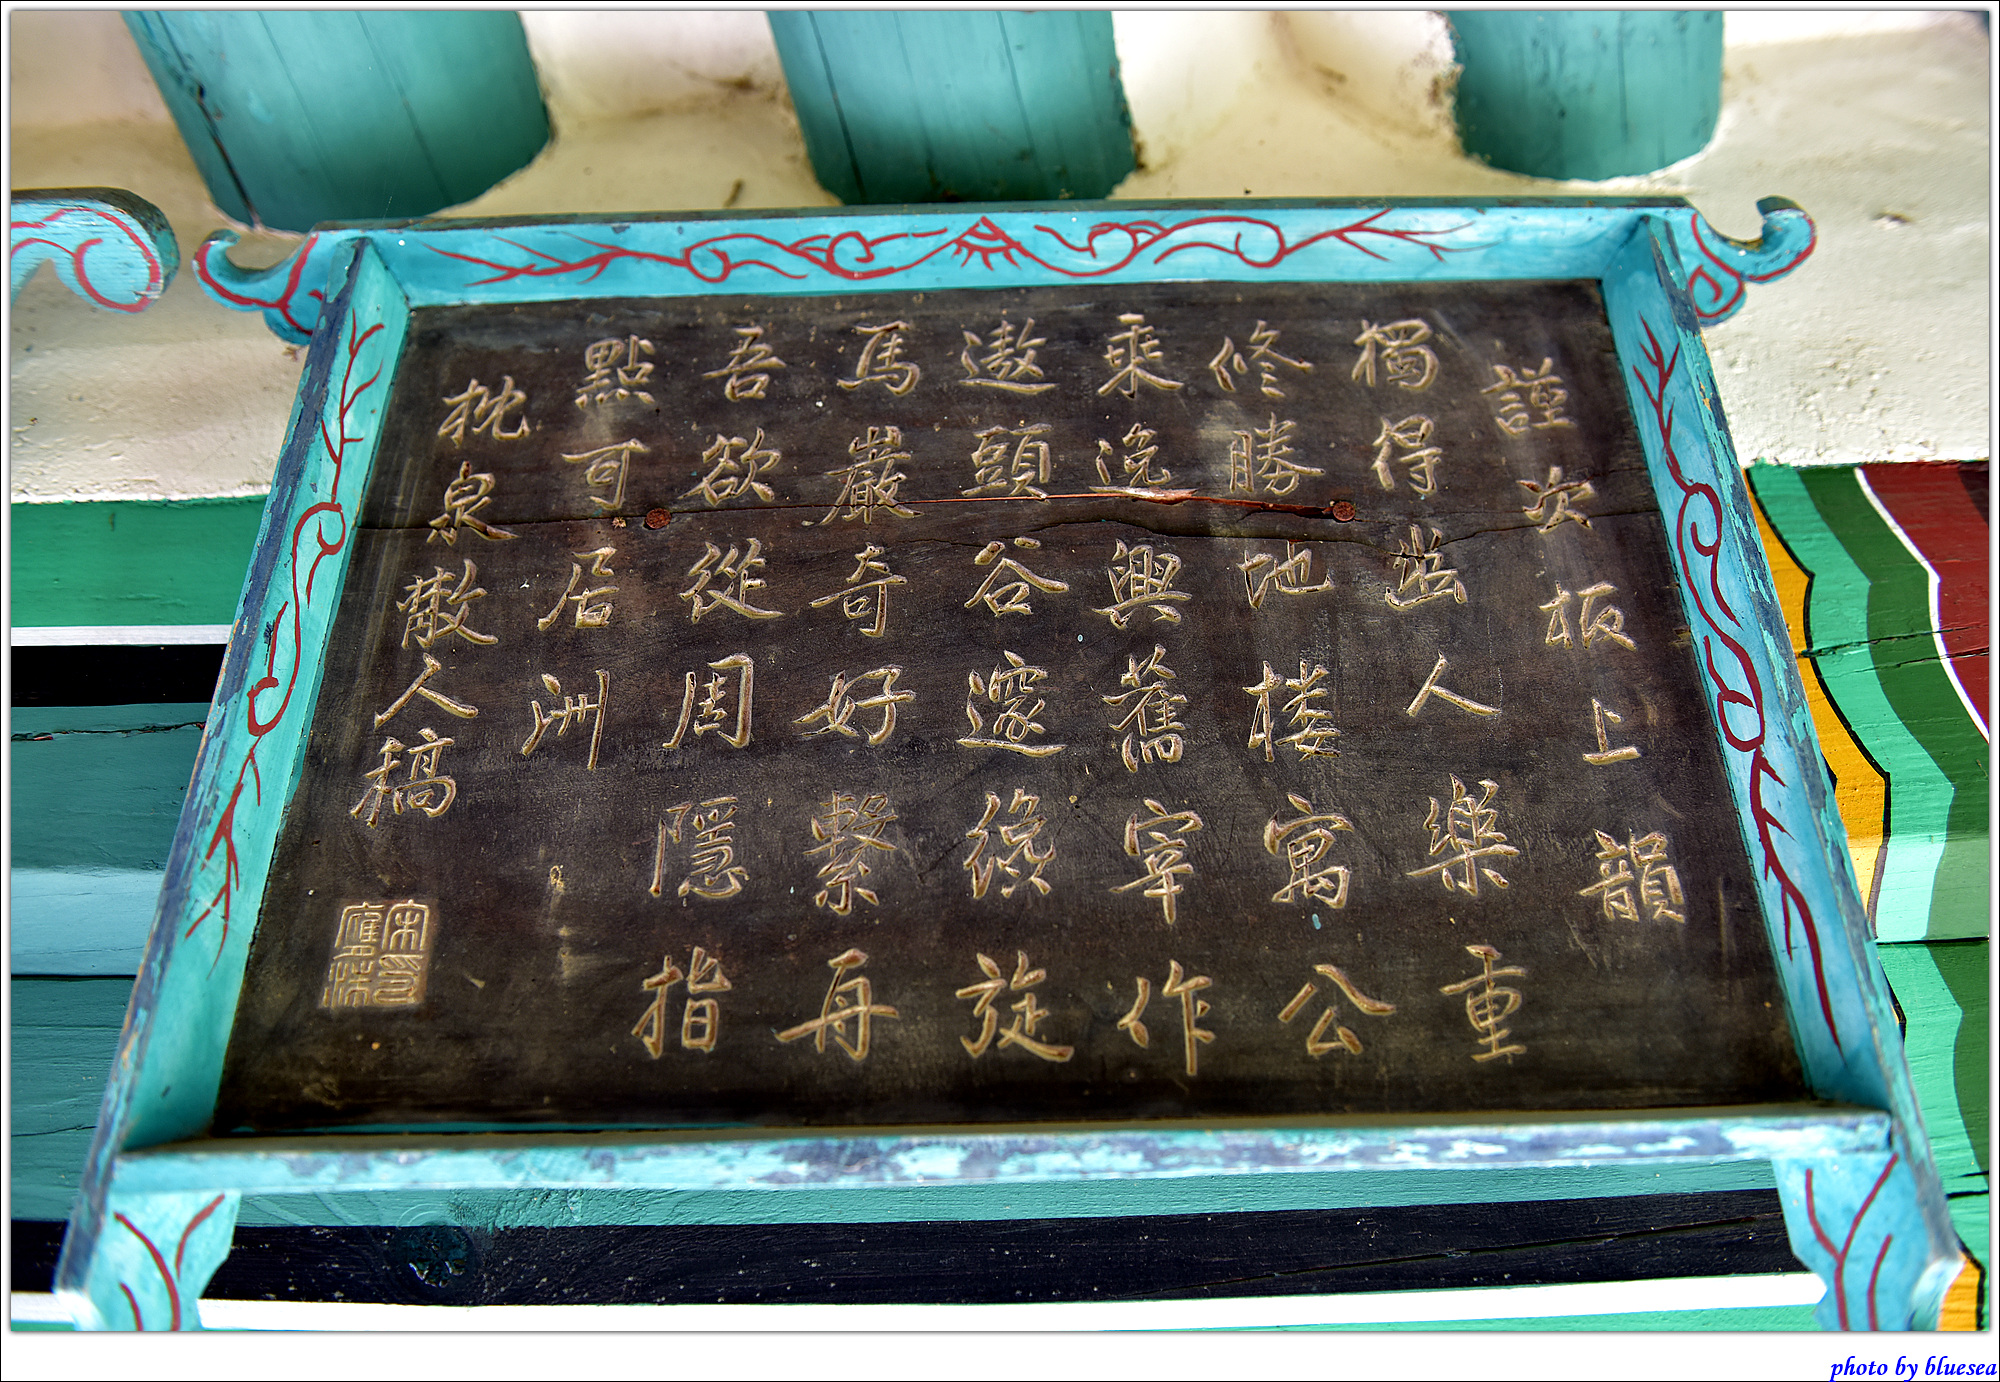 謹次板上韻
獨得幽人樂重
修勝地楼寓公
乘逸興舊宰作
遨頭谷邃纔旋
馬巖奇好繫舟
吾欲從周隱指
點可居洲
枕泉散人稿
photo by bluesea